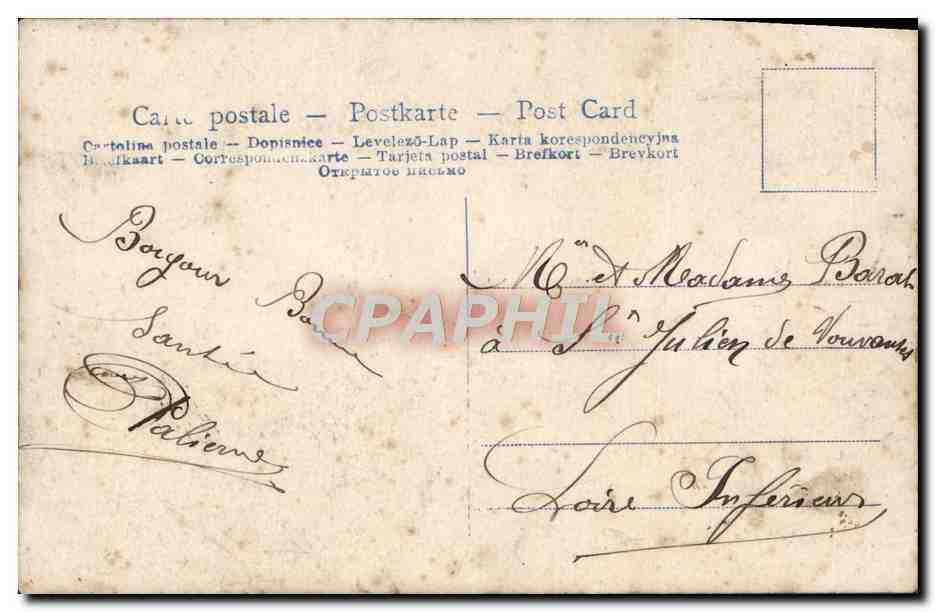 Carte postale — Postkarte — Post Card
Cartolina postale — Dopisnice — Levelező-Lap — Karta korespondencyjna
Briefkaart — Correspondenzkarte — Tarjeta postal — Brefkort — Brevkort
Открытое письмо
Bonjour Bonne
Santé
Palierne
Mr et Madame Barat
à St Julien de Vouvantes
Loire Inférieur
CPAPHIL